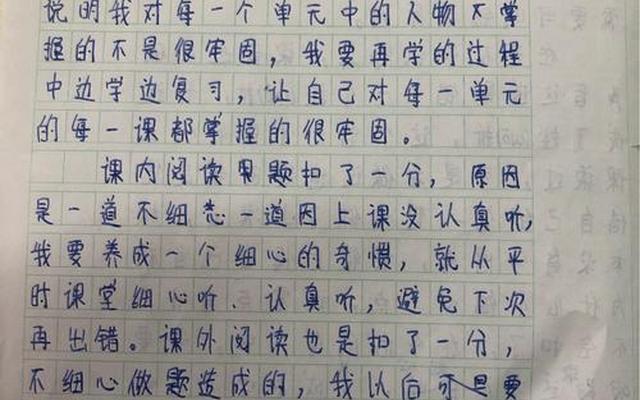 说明我对每一个单元中的人物不掌
握的不是很牢固，我要再学的过程
中边学边复习，让自己对每一单元
的每一课都掌握的很牢固。
课内阅读果题扣了一分，原因
是一道不细态一道因上课没认真听，
我要养成一个细心的奇惯，就从平
时课堂细心听.认真听，避免下次
再出错。课外阅读也是扣了一分，
不细心做题造成的，我以后可是要